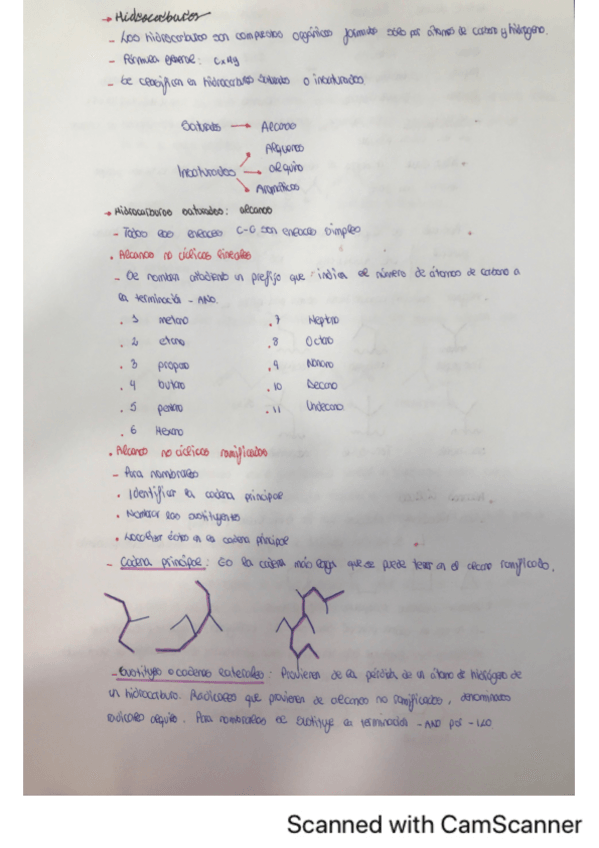 → Hidrocarburos
- Los hidrocarburos son compuestos orgánicos formados sólo por átomos de carbono y hidrógeno.
- Fórmula general: CxHy
- Se clasifican en hidrocarburos saturados o insaturados
Saturados → Alcano
Alquenos
Insaturados → alquino
Aromáticos
→ Hidrocarburos saturados: alcano
- Todos sus enlaces C-C son enlaces simples
• Alcanos no cíclicos lineales
- Se nombran añadiendo un prefijo que indica el número de átomos de carbono a
la terminación - ANO.
. 1 metano
. 2 etano
. 3 propano
. 4 butano
. 5 pentano
. 6 Hexano
. 7 Heptano
. 8 Octano
. 9 Nonano
. 10 Decano
. 11 Undecano
• Alcanos no cíclicos ramificados
- Para nombrarlos
• Identificar la cadena principal
• Nombrar los sustituyentes
• Localizar éstos en la cadena principal
- Cadena principal: Es la cadena más larga que se puede tener en el alcano ramificado.
- Sustituyes o cadenas laterales: Provienen de la pérdida de un átomo de hidrógeno de
un hidrocarburo. Radicales que provienen de alcanos no ramificados, denominados
radicales alquilo. Para nombrarlos se sustituye la terminación - ANO por - ILO
Scanned with CamScanner